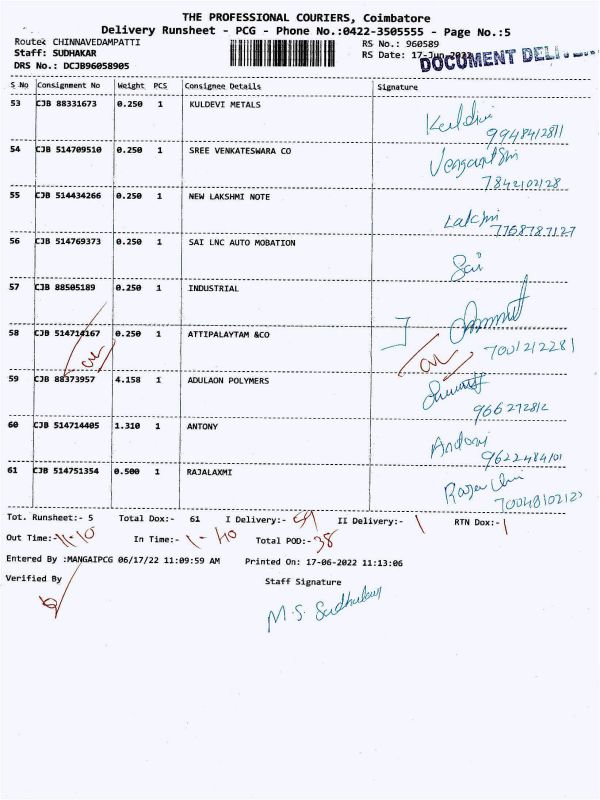 THE PROFESSIONAL COURIERS, Coimbatore
Delivery Runsheet - PCG - Phone No.:0422-3505555 - Page No.:5
Route: CHINNAVEDAMPATTI RS No.: 960589
Staff: SUDHAKAR RS Date: 17-Jun-2022
DOCUMENT
DRS No.: DCJB96058905
S No Consignment No Weight PCS Consignee Details Signature
53 CJB 88331673 0.250 1 KULDEVI METALS
9948412811
54 CJB 514709510 0.250 1 SREE VENKATESWARA CO
7842102128
55 CJB 514434266 0.250 1 NEW LAKSHMI NOTE Lakchi
7768787127
56 CJB 514769373 0.250 1 SAI LNC AUTO MOBATION Sai
57 CJB 88505189 0.250 1 INDUSTRIAL
58 CJB 514714167 0.250 1 ATTIPALAYTAM &CO
7001212281
59 CJB 88373957 4.158 1 ADULAON POLYMERS
966272812
60 CJB 514714405 1.310 1 ANTONY Andoni
9622484101
61 CJB 514751354 0.500 1 RAJALAXMI
Tot. Runsheet:- 5 Total Dox:- 61 I Delivery:- II Delivery:- 1 RTN Dox:- 1
Out Time:- 11-10 In Time:- 1-40 Total POD:- 38
Entered By :MANGAIPCG 06/17/22 11:09:59 AM Printed On: 17-06-2022 11:13:06
Verified By Staff Signature
M.S. Sudhakar